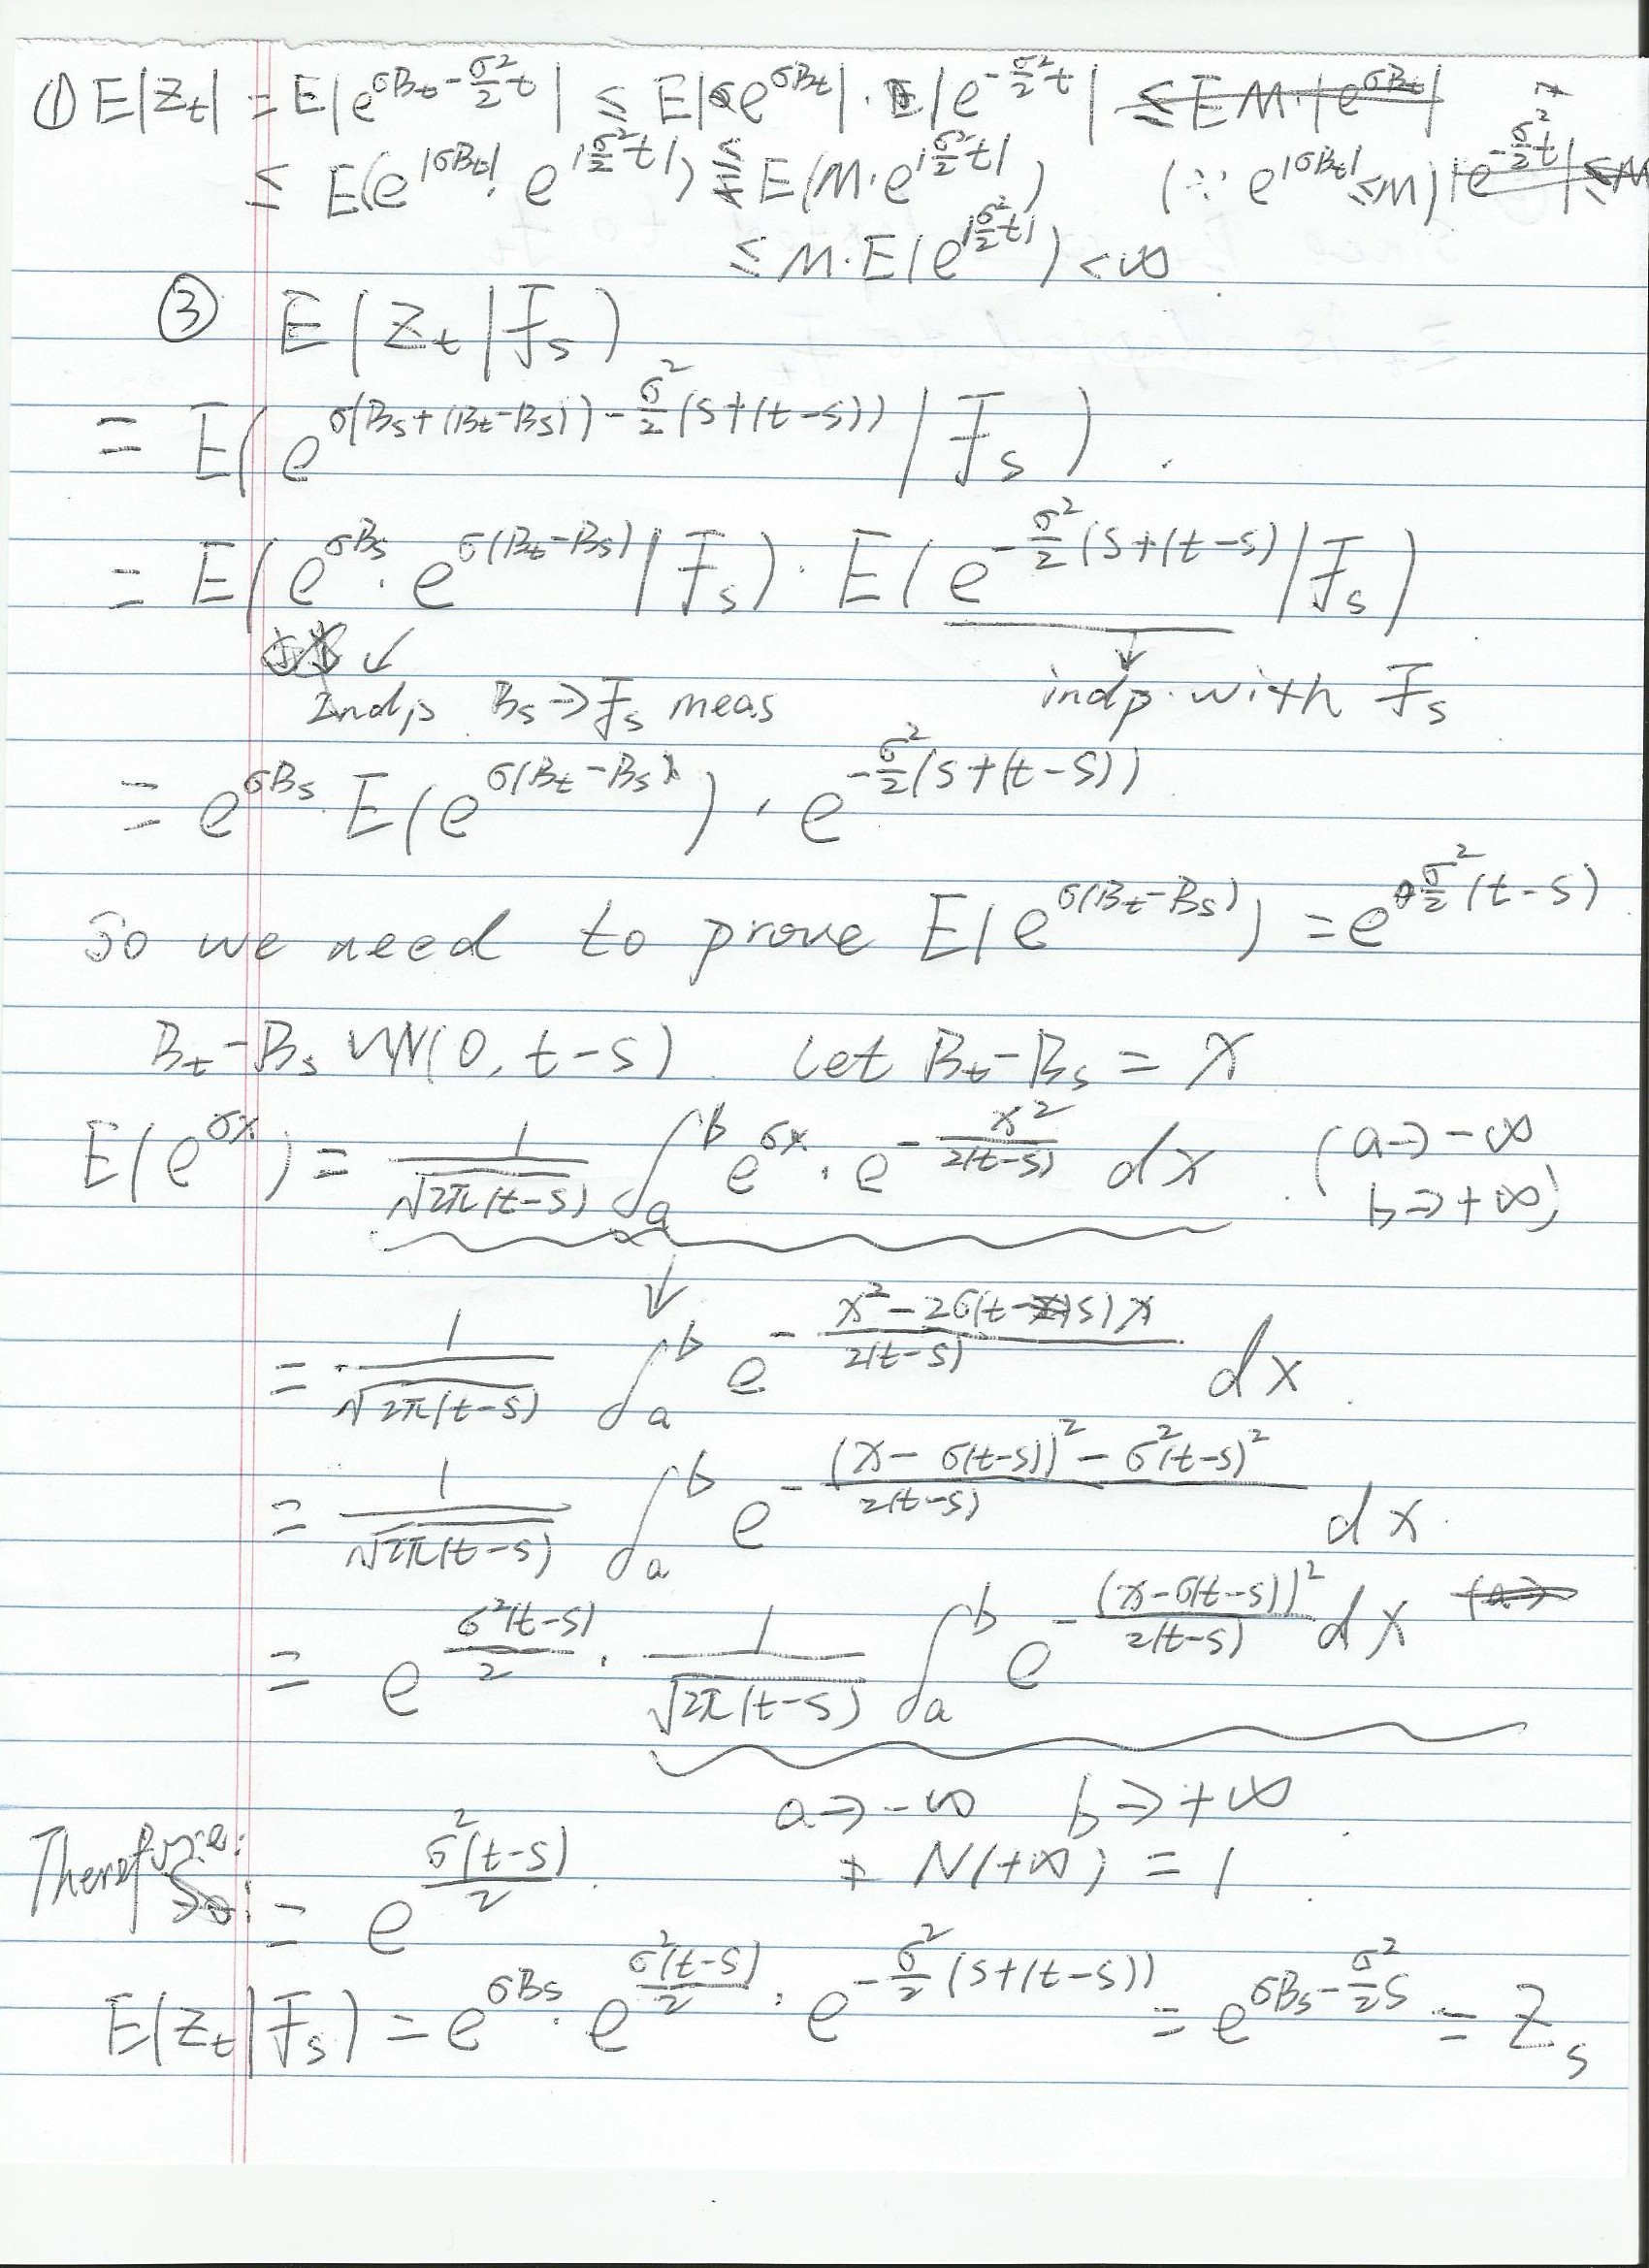 ① E|Z_t| = E|e^{σB_t - σ²/2 t}| ≤ E|e^{σB_t}| · |e^{-σ²/2 t}| ≤ E M·|e^{σB_t}|
≤ E(e^{|σB_t|} · e^{|σ²/2 t|}) ≤ E(M·e^{|σ²/2 t|}) (∵ e^{|σB_t|} ≤ M) |e^{-σ²/2 t}| ≤ M
≤ M·E(e^{|σ²/2 t|}) < ∞
③ E(Z_t|F_s)
= E(e^{σ(B_s+(B_t-B_s)) - σ²/2 (s+(t-s))} | F_s)
= E(e^{σB_s} · e^{σ(B_t-B_s)} | F_s) · E(e^{-σ²/2 (s+(t-s)} | F_s)
↙ ↓
Indp B_s → F_s meas indp. with F_s
= e^{σB_s} · E(e^{σ(B_t-B_s)}) · e^{-σ²/2 (s+(t-s))}
So we need to prove E(e^{σ(B_t-B_s)}) = e^{σ²/2 (t-s)}
B_t-B_s ~ N(0, t-s). Let B_t-B_s = x
E(e^{σx}) = 1/√(2π(t-s)) ∫_a^b e^{σx} · e^{-x²/2(t-s)} dx . (a→-∞
b→+∞)
↓
= 1/√(2π(t-s)) ∫_a^b e^{-(x²-2σ(t-s)x)/2(t-s)} dx.
= 1/√(2π(t-s)) ∫_a^b e^{-((x-σ(t-s))²-σ²(t-s)²)/2(t-s)} dx.
= e^{σ²(t-s)/2} · 1/√(2π(t-s)) ∫_a^b e^{-(x-σ(t-s))²/2(t-s)} dx (a→
a→-∞ b→+∞
N(+∞) = 1
Therefore: So: = e^{σ²(t-s)/2}.
E(Z_t|F_s) = e^{σB_s} · e^{σ²(t-s)/2} · e^{-σ²/2 (s+(t-s))} = e^{σB_s - σ²/2 s} = Z_s